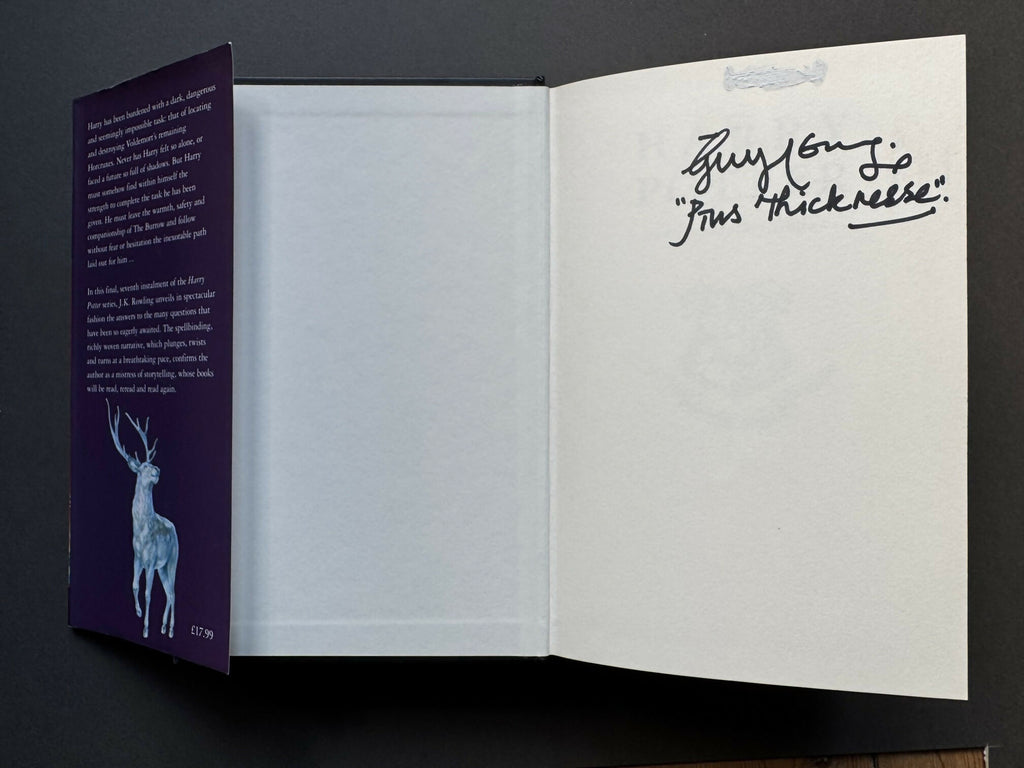 Harry has been burdened with a dark, dangerous
and seemingly impossible task: that of locating
and destroying Voldemort's remaining
Horcruxes. Never has Harry felt so alone, or
faced a future so full of shadows. But Harry
must somehow find within himself the
strength to complete the task he has been
given. He must leave the warmth, safety and
companionship of The Burrow and follow
without fear or hesitation the inexorable path
laid out for him ...
In this final, seventh instalment of the Harry
Potter series, J.K. Rowling unveils in spectacular
fashion the answers to the many questions that
have been so eagerly awaited. The spellbinding,
richly woven narrative, which plunges, twists
and turns at a breathtaking pace, confirms the
author as a mistress of storytelling, whose books
will be read, reread and read again.
£17.99
Guy
"Pius Thicknesse".